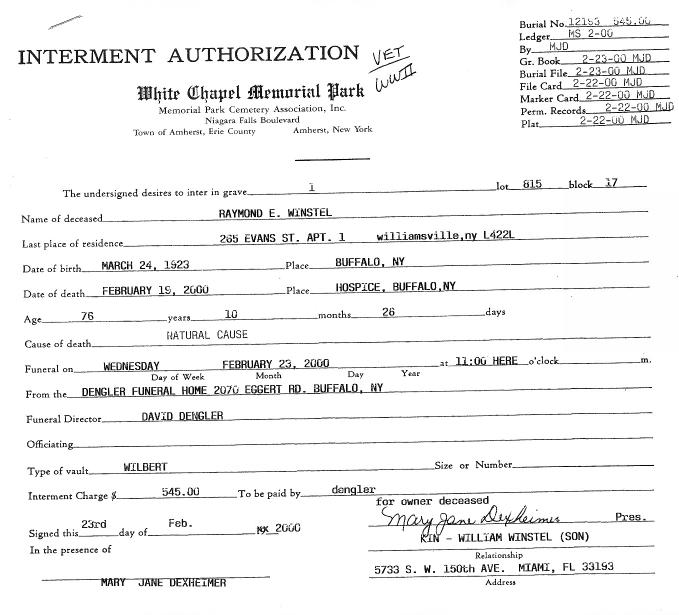 Burial No. 12153 545.00
Ledger MS 2-00
By MJD
Gr. Book 2-23-00 MJD
Burial File 2-23-00 MJD
File Card 2-22-00 MJD
Marker Card 2-22-00 MJD
Perm. Records 2-22-00 MJD
Plat 2-22-00 MJD
INTERMENT AUTHORIZATION
VET
WWII
White Chapel Memorial Park
Memorial Park Cemetery Association, Inc.
Niagara Falls Boulevard
Town of Amherst, Erie County Amherst, New York
The undersigned desires to inter in grave 1 lot 815 block 17
Name of deceased RAYMOND E. WINSTEL
Last place of residence 265 EVANS ST. APT. 1 williamsville,ny L422L
Date of birth MARCH 24, 1923 Place BUFFALO, NY
Date of death FEBRUARY 19, 2000 Place HOSPICE, BUFFALO,NY
Age 76 years 10 months 26 days
Cause of death NATURAL CAUSE
Funeral on WEDNESDAY FEBRUARY 23, 2000 at 11:00 HERE o'clock m.
Day of Week Month Day Year
From the DENGLER FUNERAL HOME 2070 EGGERT RD. BUFFALO, NY
Funeral Director DAVID DENGLER
Officiating
Type of vault WILBERT Size or Number
Interment Charge $ 545.00 To be paid by dengler
for owner deceased
Mary Jane Dexheimer Pres.
Signed this 23rd day of Feb. 2000
KIN - WILLIAM WINSTEL (SON)
In the presence of
Relationship
5733 S. W. 150th AVE. MIAMI, FL 33193
MARY JANE DEXHEIMER
Address